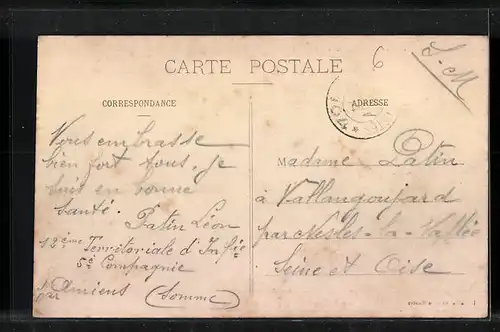 6
F. M
CARTE POSTALE
CORRESPONDANCE
ADRESSE
Vous embrasse
bien fort tous. Je
suis en bonne
santé.
Patin Léon
12ème Territoriale d'Infie
5e Compagnie
Amiens (Somme)
Madame Patin
à Vallangoujard
par Nesles-la-Vallée
Seine et Oise